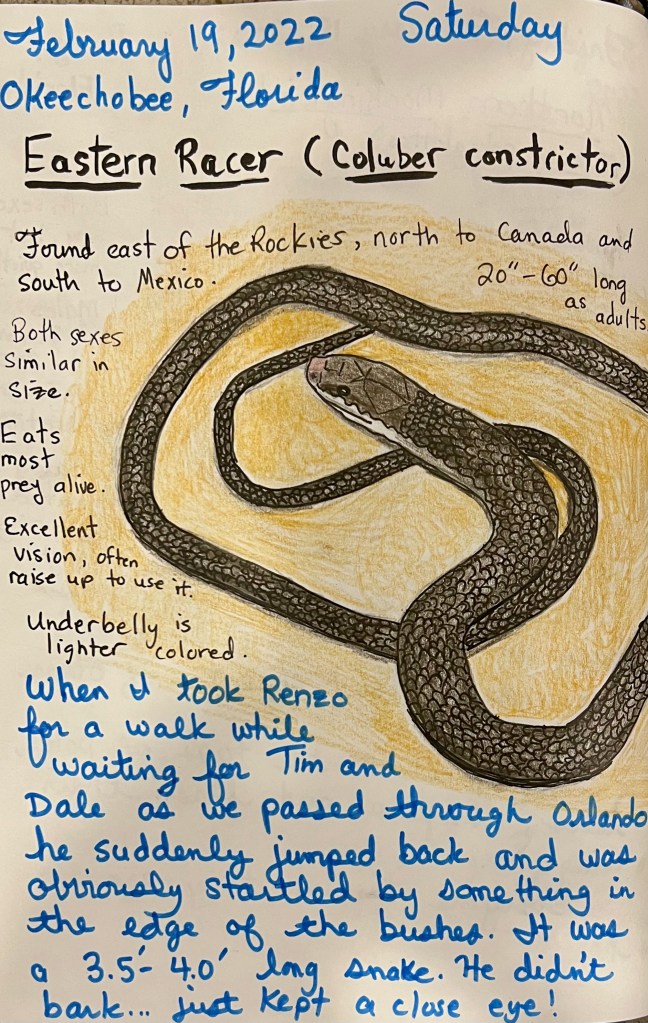 February 19, 2022 Saturday
Okeechobee, Florida
Eastern Racer (Coluber constrictor)
Found east of the Rockies, north to Canada and
south to Mexico.
20"-60" long
as adults.
Both sexes
similar in
size.
Eats
most
prey alive.
Excellent
vision, often
raise up to use it.
Underbelly is
lighter colored.
When I took Renzo
for a walk while
waiting for Tim and
Dale as we passed through Orlando
he suddenly jumped back and was
obviously startled by something in
the edge of the bushes. It was
a 3.5'- 4.0' long snake. He didn't
bark... just kept a close eye!